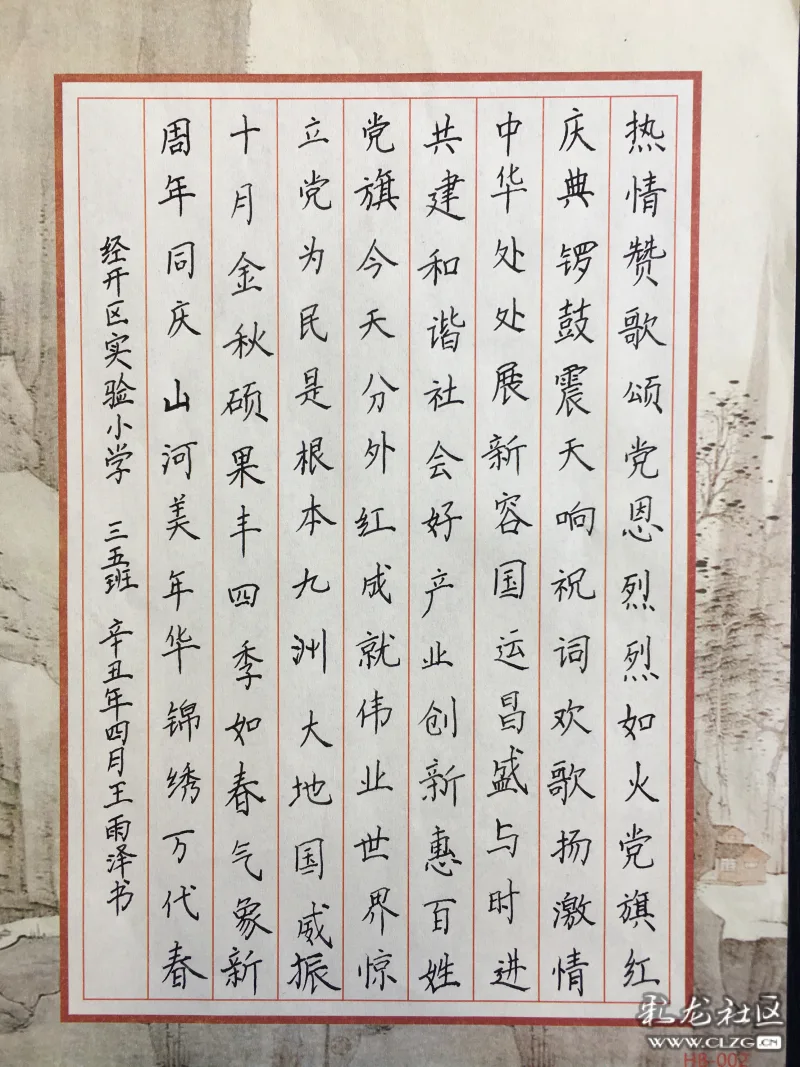 热情赞歌颂党恩烈烈如火党旗红
庆典锣鼓震天响祝词欢歌扬激情
中华处处展新容国运昌盛与时进
共建和谐社会好产业创新惠百姓
党旗今天分外红成就伟业世界惊
立党为民是根本九洲大地国威振
十月金秋硕果丰四季如春气象新
周年同庆山河美年华锦绣万代春
经开区实验小学 三五班 辛丑年四月王雨泽书
氿龙社区
WWW.CLZG.CN
HB-002